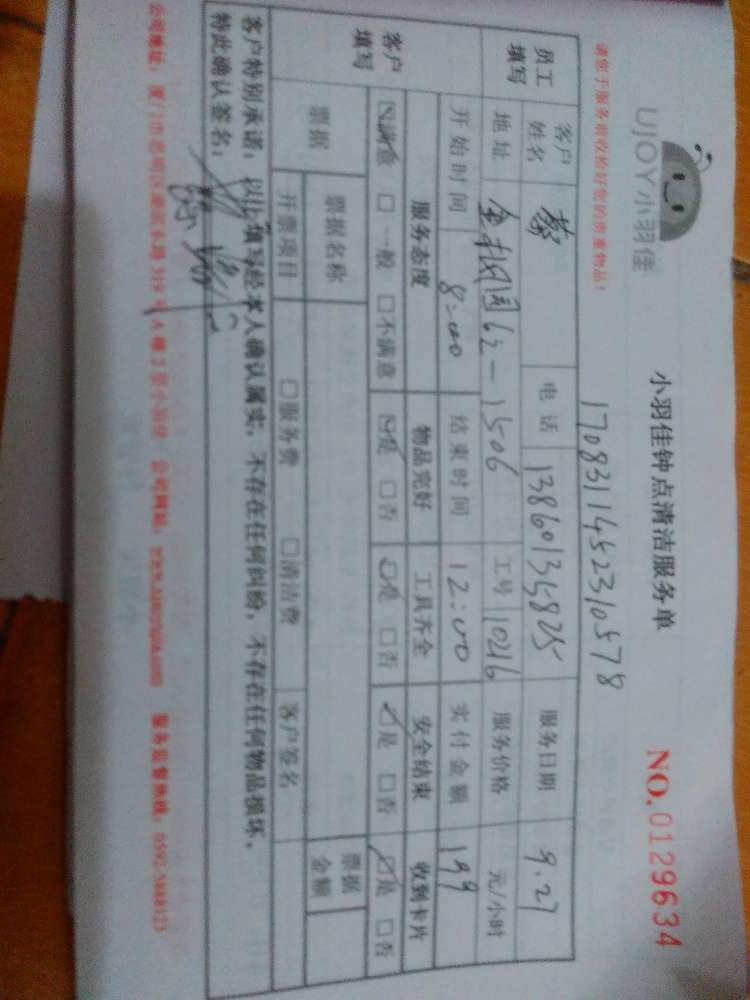 UJOY小羽佳
小羽佳钟点清洁服务单
NO.0129634
请您于服务前收拾好您的贵重物品!
1708311452310578
员工填写 客户姓名 蔡 电话 服务日期 9.27
地址 1506 工号 10216 服务价格 元/小时
开始时间 8:00 结束时间 12:00 实付金额 199
客户填写 服务态度 物品完好 工具齐全 安全结束 收到卡片
☑满意 □一般 □不满意 ☑是 □否 ☑是 □否 ☑是 □否 ☑是 □否
票据 票据名称 票据金额
开票项目 □服务费 □清洁费 客户签名
客户特别承诺:以上填写经本人确认属实,不存在任何纠纷,不存在任何物品损坏,
特此确认签名:
公司地址:厦门市思明区 319号A幢2层小羽佳 公司网站: 服务监督热线:0592-5888123